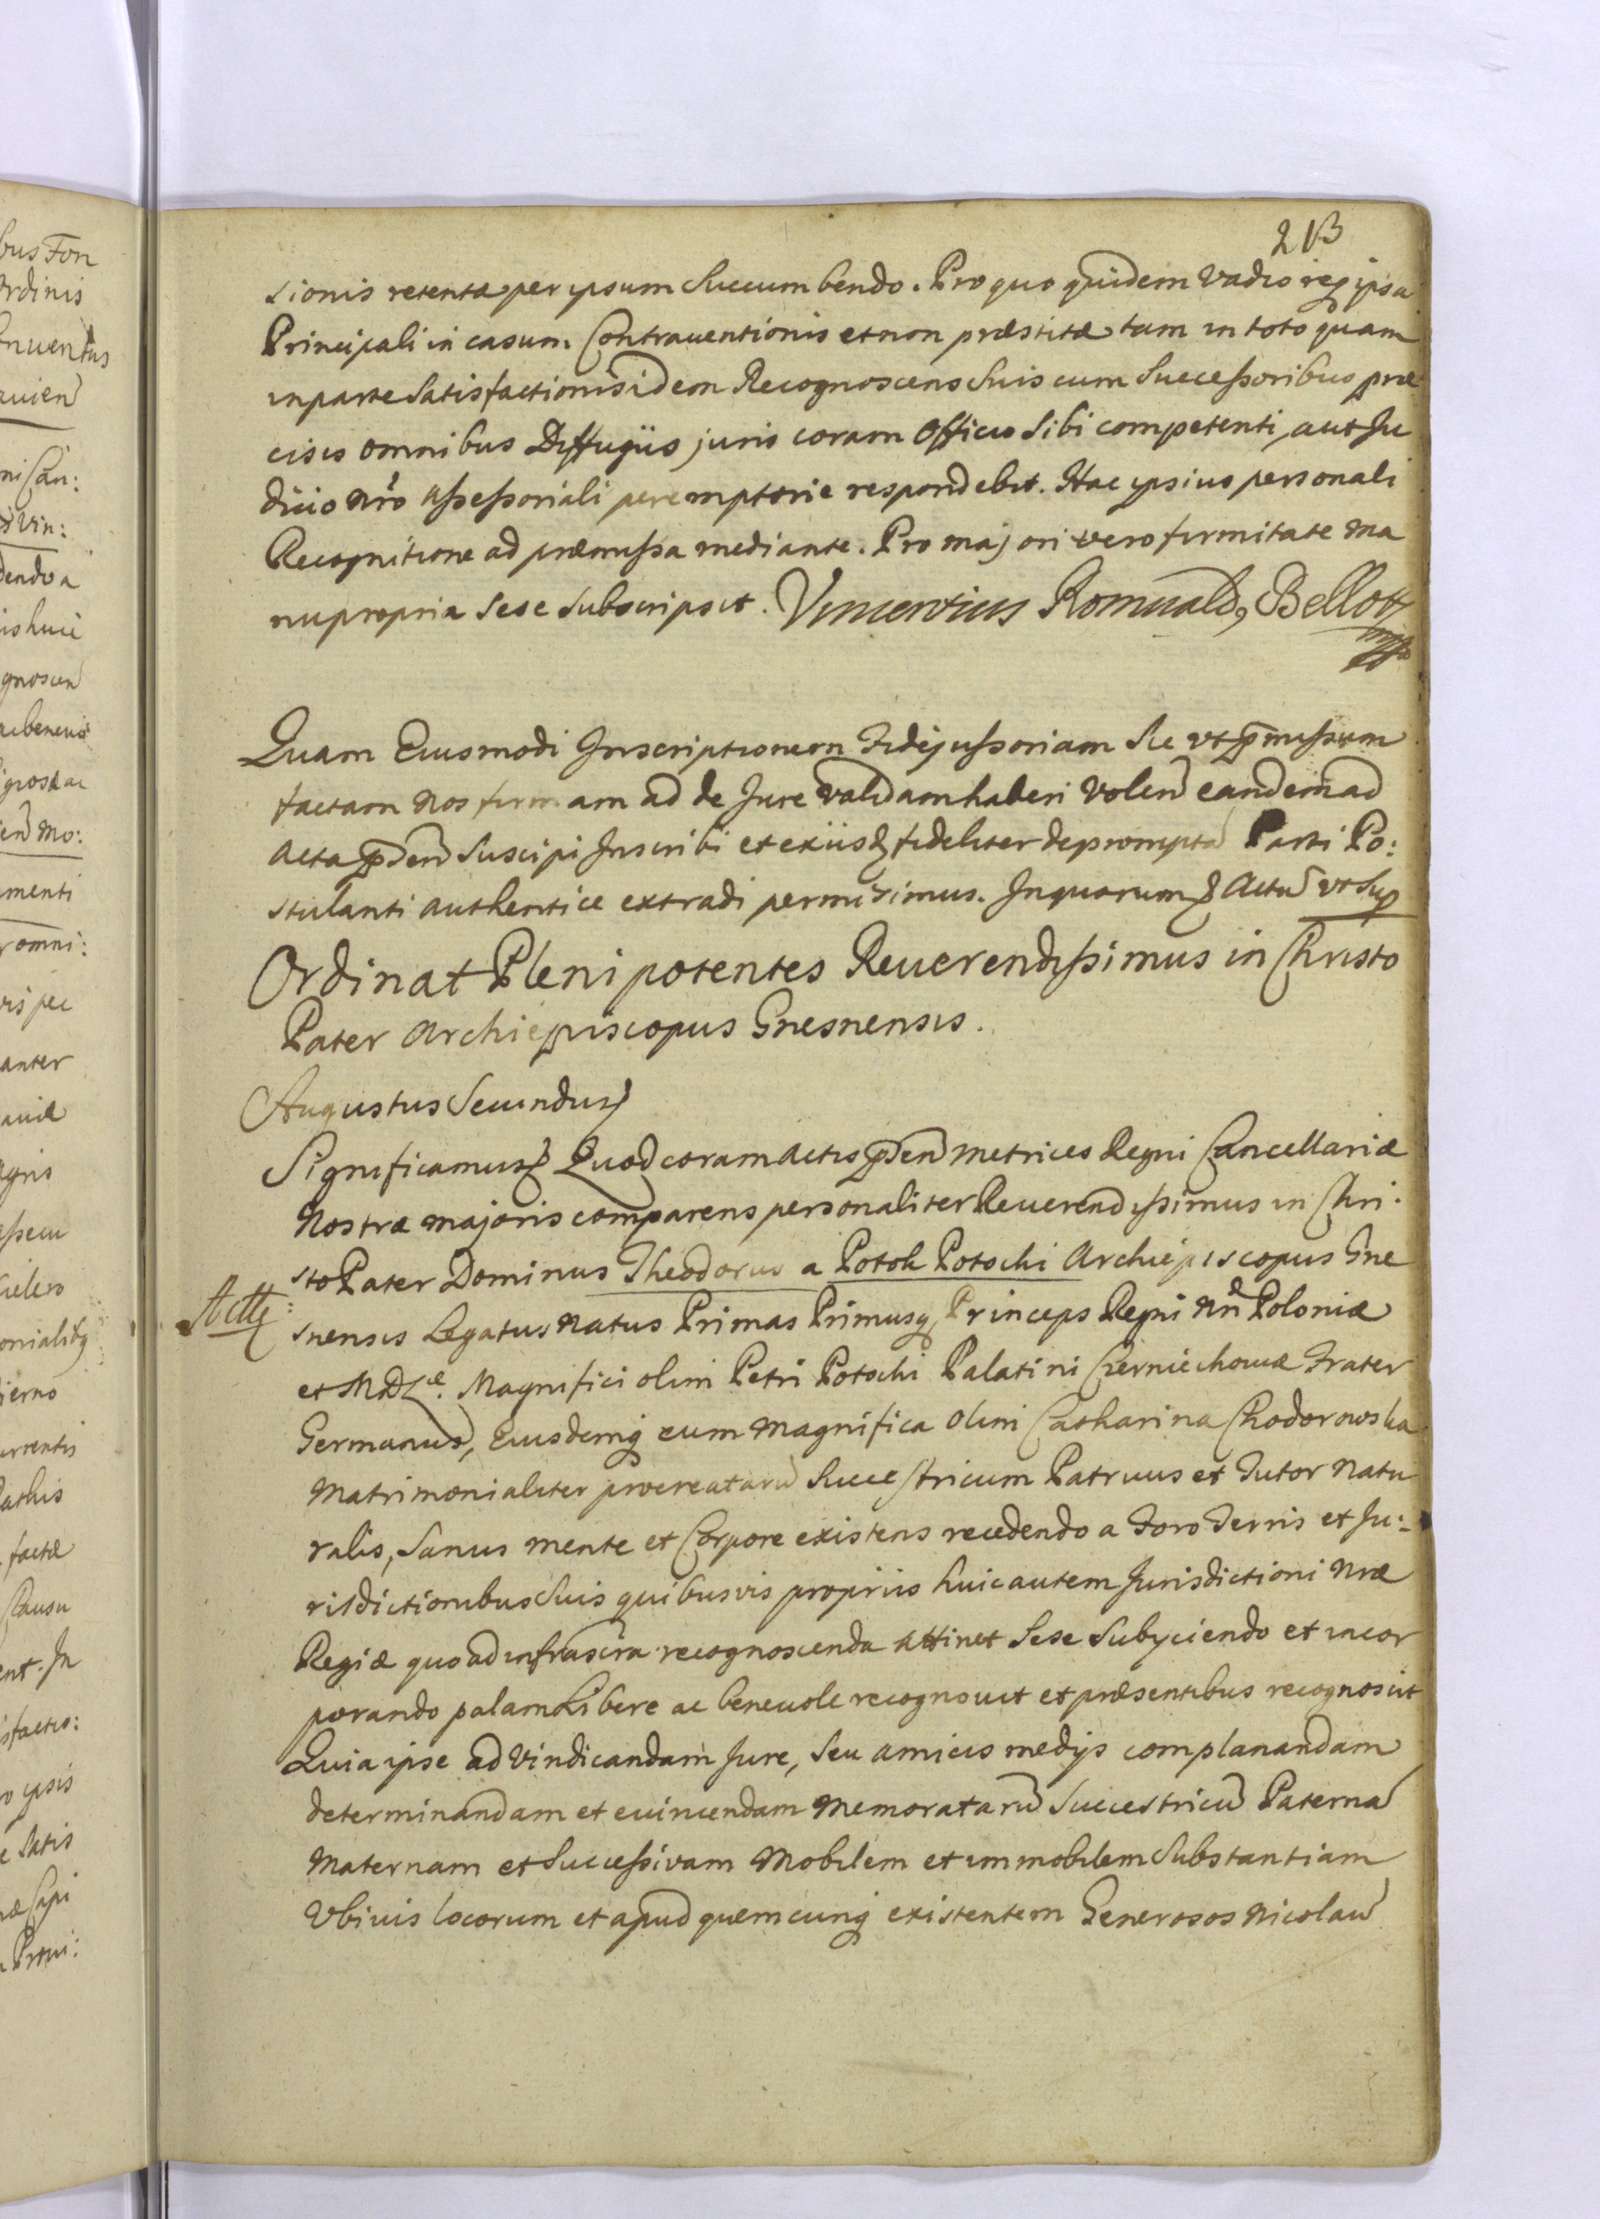 213
sionis retentæ per ipsum Succumbendo. Pro quo quidem Vadio reqz ipsa
Principali in casum Contrauentionis et non præstitæ tam in toto quam
in parte Satisfactionis idem Recognoscens Suis cum Successoribus præ
cisis omnibus Diffugiis juris coram Officio Sibi competenti, aut Ju
dicio Nrô Assessoriali peremptorie respondebit. Hac ipsius personali
Recognitione ad præmissa mediante. Pro majori vero firmitate Ma
nu propria Sese Subscripsit. Vincentius Romuald9 Bellott
mpp
Quam Eiusmodi Inscriptionem Fidejussoriam Sic vt pmissum
factam Nos firmam ad de Jure validam haberi Volen eandem ad
Acta pden Suscipi Inscribi et ex iisd fideliter depromptā Parti Po:
stulanti authentice extradi permisimus. In quorum Actū vt Sup
Ordinat Plenipotentes Reuerendissimus in Christo
Pater Archiepiscopus Gnesnensis.
Augustus Secundus
Significamus Quod coram Actis pden Metrices Regni Cancellariæ
Nostræ majoris comparens personaliter Reuerendissimus in Chri:
sto Pater Dominus Theodorus a Potok Potocki Archiepiscopus Gne
snensis Legatus Natus Primas Primusq Princeps Regni Poloniæ
et M.D.L. Magnifici olim Petri Potocki Palatini Czerniechouiæ Frater
Germanus, Eiusdemq cum Magnifica Olim Catharina Chodorowska
Matrimonialiter procreatarū Succestricum Patruus et Tutor Natu
ralis, Sanus mente et Corpore existens recedendo a Foro Terris et Ju:
risdictionibus Suis quibusvis propriis huic autem Jurisdictioni Nræ
Regiæ quo ad infrascra recognoscenda attinet Sese Subyciendo et incor
porando palam Libere ac beneuole recognouit et præsentibus recognoscit
Quia ipse ad Vindicandam Jure, Seu amicis medijs complanandam
determinandam et euincendam Memoratarū Succestricū Paternā
Maternam et Successivam Mobilem et immobilem Substantiam
Vbiuis locorum et apud quemcunq existentem Generosos Nicolaū